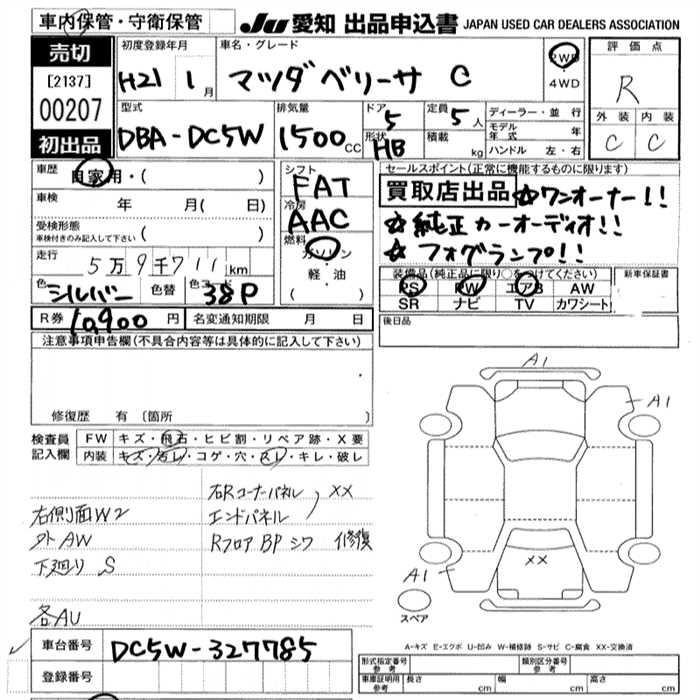 車内保管・守衛保管
JU愛知 出品申込書 JAPAN USED CAR DEALERS ASSOCIATION
売切
[2137]
00207
初出品
初度登録年月
H21 1月
車名・グレード
マツダベリーサ C
2WD
・
4WD
評価点
R
外装 内装
C C
型式
DBA-DC5W
排気量
1500cc
ドア
5
形状
HB
定員
5人
積載
kg
ディーラー・並行
モデル年式 年
ハンドル 左・右
車歴
自家用・( )
車検 年 月( 日)
受検形態
車検付きのみ記入して下さい( )
走行
5万9千711km
色 シルバー 色替 色コード 38P
R券 10,900円 名変通知期限 月 日
シフト
FAT
冷房
AAC
燃料
ガソリン
・
軽・油
( )
セールスポイント(正常に機能するものに限ります)
買取店出品 ☆ワンオーナー!!
☆純正カーオーディオ!!
☆フォグランプ!!
装備品(純正品に限り○をつけてください)
PS PW エアB AW
SR ナビ TV カワシート
新車保証書
後日品
注意事項申告欄(不具合内容等は具体的に記入して下さい)
修復歴 有 〔箇所
検査員記入欄
FW キズ・飛石・ヒビ割・リペア跡・X要
内装 キズ・汚レ・コゲ・穴・スレ・キレ・破レ
右側面W2
外AW
下廻り S
各AU
右Rコーナーパネル
エンドパネル
XX
RフロアBPシワ 修復
A1
A1
XX
A1
スペア
A-キズ E-エクボ U-凹み W-補修跡 S-サビ C-腐食 XX-交換済
車台番号 DC5W-327785
登録番号
形式指定番号 参考 類別区分番号 参考
車庫証明用 参考 長さ cm 幅 cm 高さ cm